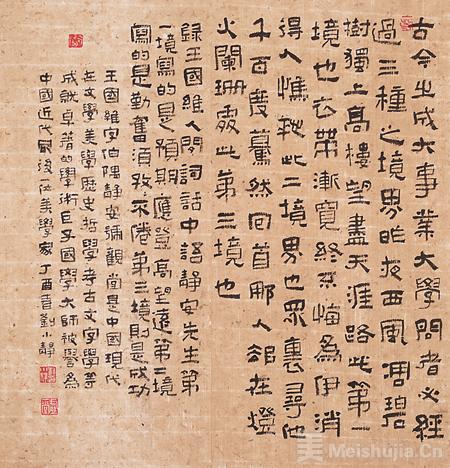 古今之成大事業大學問者必經
過三種之境界昨夜西風凋碧
樹獨上高樓望盡天涯路此第一
境也衣帶漸寬終不悔為伊消
得人憔悴此二境界也眾裏尋他
千百度驀然回首那人卻在燈
火闌珊處此第三境也
錄王國維人間詞話中語靜安先生第
一境寫的是預期應登高望遠第二境
寫的是勤奮須孜不倦第三境則是成功
王國維字伯隅靜安號觀堂是中國現代
在文學美學歷史哲學考古文字學等
成就卓著的學術巨子國學大師被譽為
中國近代最後一位美學家丁酉春劉小靜
美 Meishujia.Cn